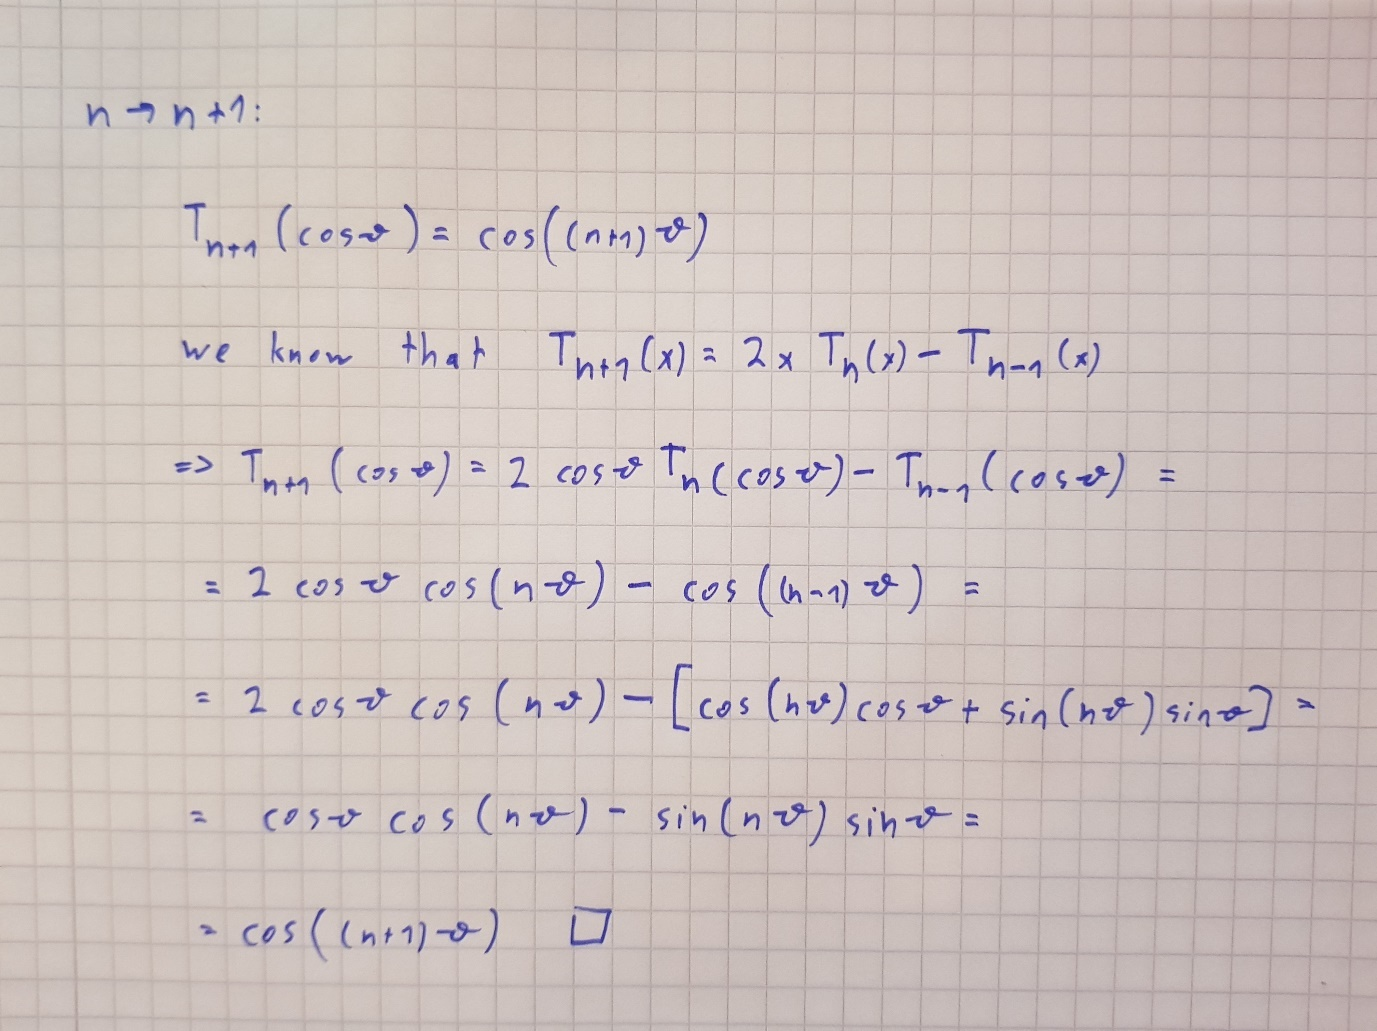 n → n+1:
T_{n+1}(cosϑ) = cos((n+1)ϑ)
we know that T_{n+1}(x) = 2x T_n(x) − T_{n−1}(x)
=> T_{n+1}(cosϑ) = 2 cosϑ T_n(cosϑ) − T_{n−1}(cosϑ) =
= 2 cosϑ cos(nϑ) − cos((n−1)ϑ) =
= 2 cosϑ cos(nϑ) − [cos(nϑ)cosϑ + sin(nϑ)sinϑ] =
= cosϑ cos(nϑ) − sin(nϑ) sinϑ =
= cos((n+1)ϑ) □